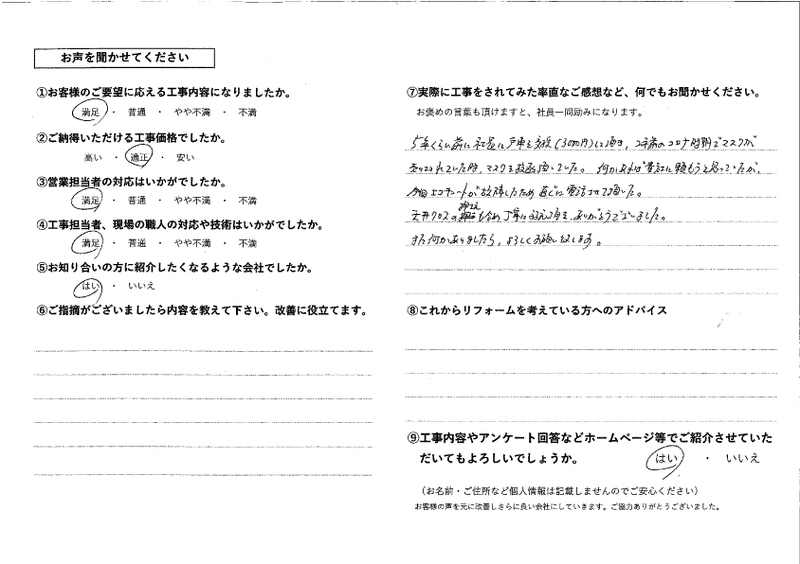 お声を聞かせてください
①お客様のご要望に応える工事内容になりましたか。
満足 ・ 普通 ・ やや不満 ・ 不満
②ご納得いただける工事価格でしたか。
高い ・ 適正 ・ 安い
③営業担当者の対応はいかがでしたか。
満足 ・ 普通 ・ やや不満 ・ 不満
④工事担当者、現場の職人の対応や技術はいかがでしたか。
満足 ・ 普通 ・ やや不満 ・ 不満
⑤お知り合いの方に紹介したくなるような会社でしたか。
はい ・ いいえ
⑥ご指摘がございましたら内容を教えて下さい。改善に役立てます。
⑦実際に工事をされてみた率直なご感想など、何でもお聞かせください。
お褒めの言葉も頂けますと、社員一同励みになります。
5年くらい前に社長に戸車を交換(3000円)して頂き、2年前のコロナ時期でマスクが
売り切れていた時、マスクを数函頂いていました。何かあれば貴社に頼もうと思っていたが、
今回エコキュートが故障したため直ぐに電話させて頂いた。
天井クロスの張替えも含め丁寧に対応頂き、ありがとうございました。
また何かありましたら、よろしくお願いします。
⑧これからリフォームを考えている方へのアドバイス
⑨工事内容やアンケート回答などホームページ等でご紹介させていた
だいてもよろしいでしょうか。 はい ・ いいえ
（お名前・ご住所など個人情報は記載しませんのでご安心ください）
お客様の声を元に改善しさらに良い会社にしていきます。ご協力ありがとうございました。